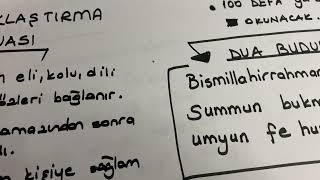 KLAŞTIRMA
UASI
eli, kolu, dili
bağlanır.
sonra
kişiye sağlam
• 100 DEFA
OKUNACAK.
DUA BUDUR
Bismillahirrahman
Summun bukm
umyun fe hu